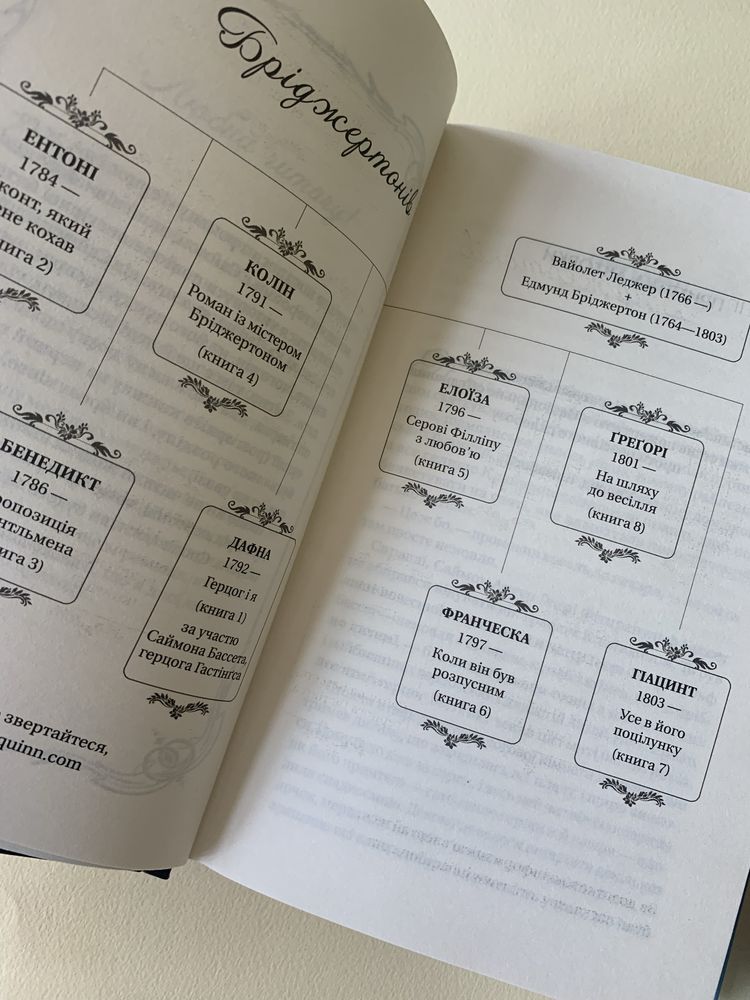 Бріджертонів
ЕНТОНІ
1784 —
який
кохав
2)
КОЛІН
1791 —
Роман із містером
Бріджертоном
(книга 4)
БЕНЕДИКТ
1786 —
3)
ДАФНА
1792 —
Герцог і я
(книга 1)
за участю
Саймона Бассета,
герцога Гастінґса
звертайтеся,
quinn.com
Вайолет Леджер (1766 —)
+
Едмунд Бріджертон (1764—1803)
ЕЛОЇЗА
1796 —
Серові Філліпу
з любов'ю
(книга 5)
ҐРЕҐОРІ
1801 —
На шляху
до весілля
(книга 8)
ФРАНЧЕСКА
1797 —
Коли він був
розпусним
(книга 6)
ГІАЦИНТ
1803 —
Усе в його
поцілунку
(книга 7)